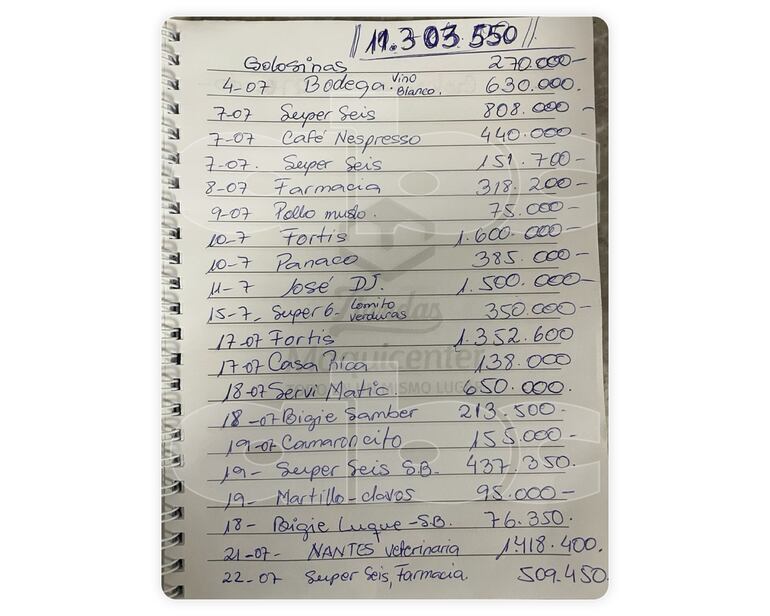 11.303.550
Golosinas 270.000-
4-07 Bodega. Vino Blanco. 630.000.
7-07 Super Seis 808.000-
7-07 Café Nespresso 440.000-
7-07. Super Seis 151.700-
8-07 Farmacia 318.200-
9-07 Pollo muslo. 75.000-
10-7 Fortis 1.600.000-
10-7 Panaco 385.000-
11-7 José DJ. 1.500.000-
15-7, Super 6- Lomito verduras 350.000-
17-07 Fortis 1.352.600
17-07 Casa Rica 138.000
18-07 Servi Matic. 650.000.
18-07 Bigie Samber 213.500-
19-07 Camaroncito 155.000-
19- Super Seis S.B- 437.350.
19- Martillo-clavos 95.000-
18- Bigie Luque-S.B. 76.350.
21-07- NANTES veterinaria 1.418.400.
22-07 Super Seis, Farmacia. 509.450